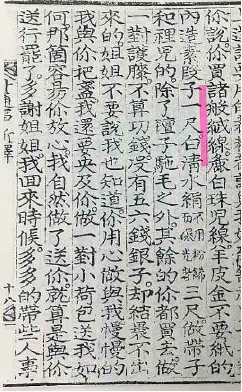 你說你買諸般絨線敁白珠兒線。羊皮金不要紙的
内造素段子一尺白清水絹不用粉飾三尺做帶子
和裡兒的。除了氊子駝毛之外。其餘的你都買去做
一對護膝不算功錢。没有五六錢銀子。却結裹不出
來的姐姐不要說我也知道你用心做與我慢慢的
我與你把盞我還要央及你做一對小荷包送我如
何那箇容易你放心我自然做了送你。就算是與你
送行罷了。多謝姐姐我回來時候。多多的帶些人事
通事新釋 十八